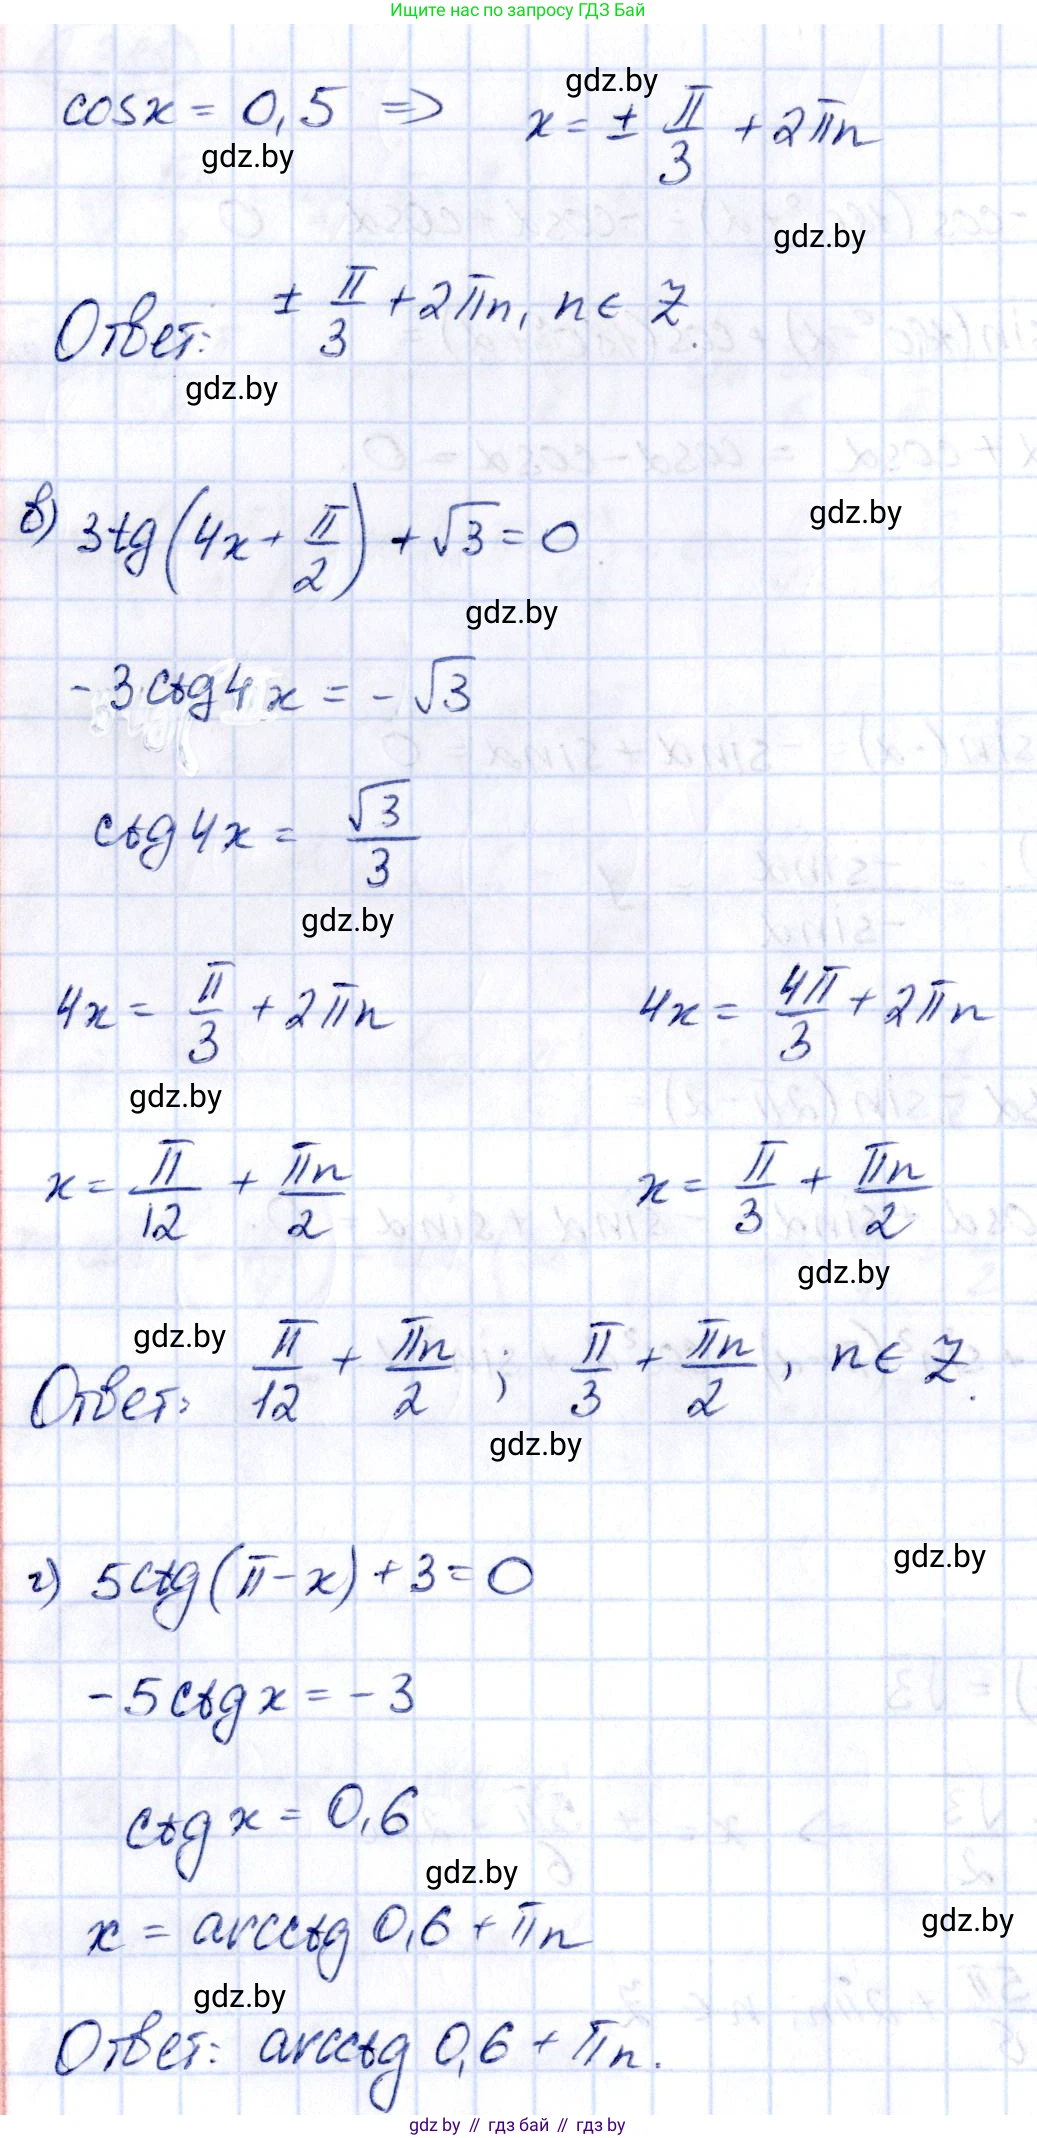 Ищите нас по запросу ГДЗ Бай
gdz.by
cosx = 0,5 => x = ± π/3 + 2πn
gdz.by
gdz.by
Ответ: ± π/3 + 2πn, n ∈ Z.
gdz.by
в) 3tg(4x + π/2) + √3 = 0
gdz.by
gdz.by
-3ctg4x = -√3
ctg4x = √3/3
gdz.by
4x = π/3 + 2πn 4x = 4π/3 + 2πn
gdz.by
x = π/12 + πn/2 x = π/3 + πn/2
gdz.by
gdz.by
Ответ: π/12 + πn/2 ; π/3 + πn/2, n ∈ Z.
gdz.by
gdz.by
г) 5ctg(π - x) + 3 = 0
-5ctgx = -3
ctgx = 0,6
gdz.by
gdz.by
x = arcctg 0,6 + πn
gdz.by
Ответ: arcctg 0,6 + πn.
gdz.by // гдз бай // гдз by